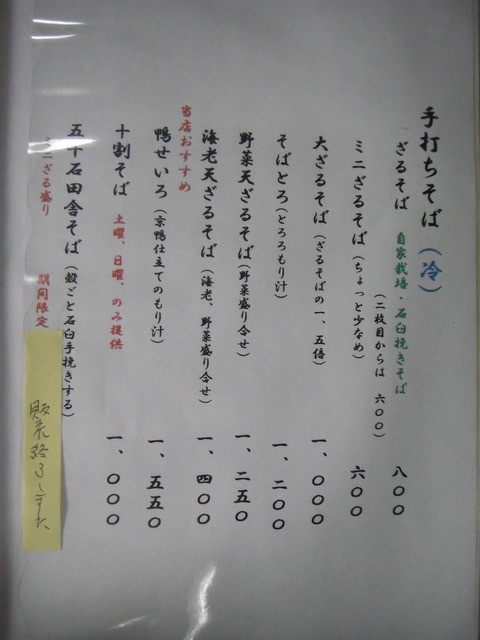 手打ちそば（冷）
ざるそば 自家栽培・石臼挽きそば 八〇〇
（二枚目からは 六〇〇）
ミニざるそば（ちょっと少なめ） 六〇〇
大ざるそば（ざるそばの一、五倍） 一、〇〇〇
そばとろ（とろろもり汁） 一、二〇〇
野菜天ざるそば（野菜盛り合せ） 一、二五〇
海老天ざるそば（海老、野菜盛り合せ） 一、四〇〇
当店おすすめ
鴨せいろ（京鴨仕立てのもり汁） 一、五五〇
十割そば 土曜、日曜、のみ提供 一、〇〇〇
五十石田舎そば（殻ごと石臼手挽きする）
ミニざる盛り 期間限定
販売終了しました